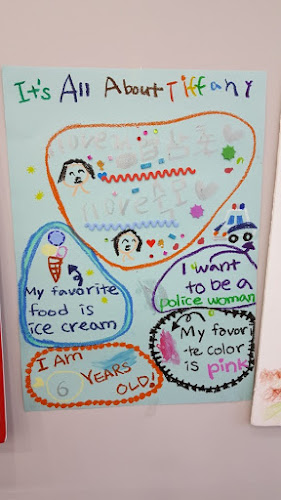 It's All About Tiffany
I love
I love
My favorite
food is
ice cream
I want
to be a
police woman
My favor
-ite color
is pink
I Am
6 YEARS
OLD!